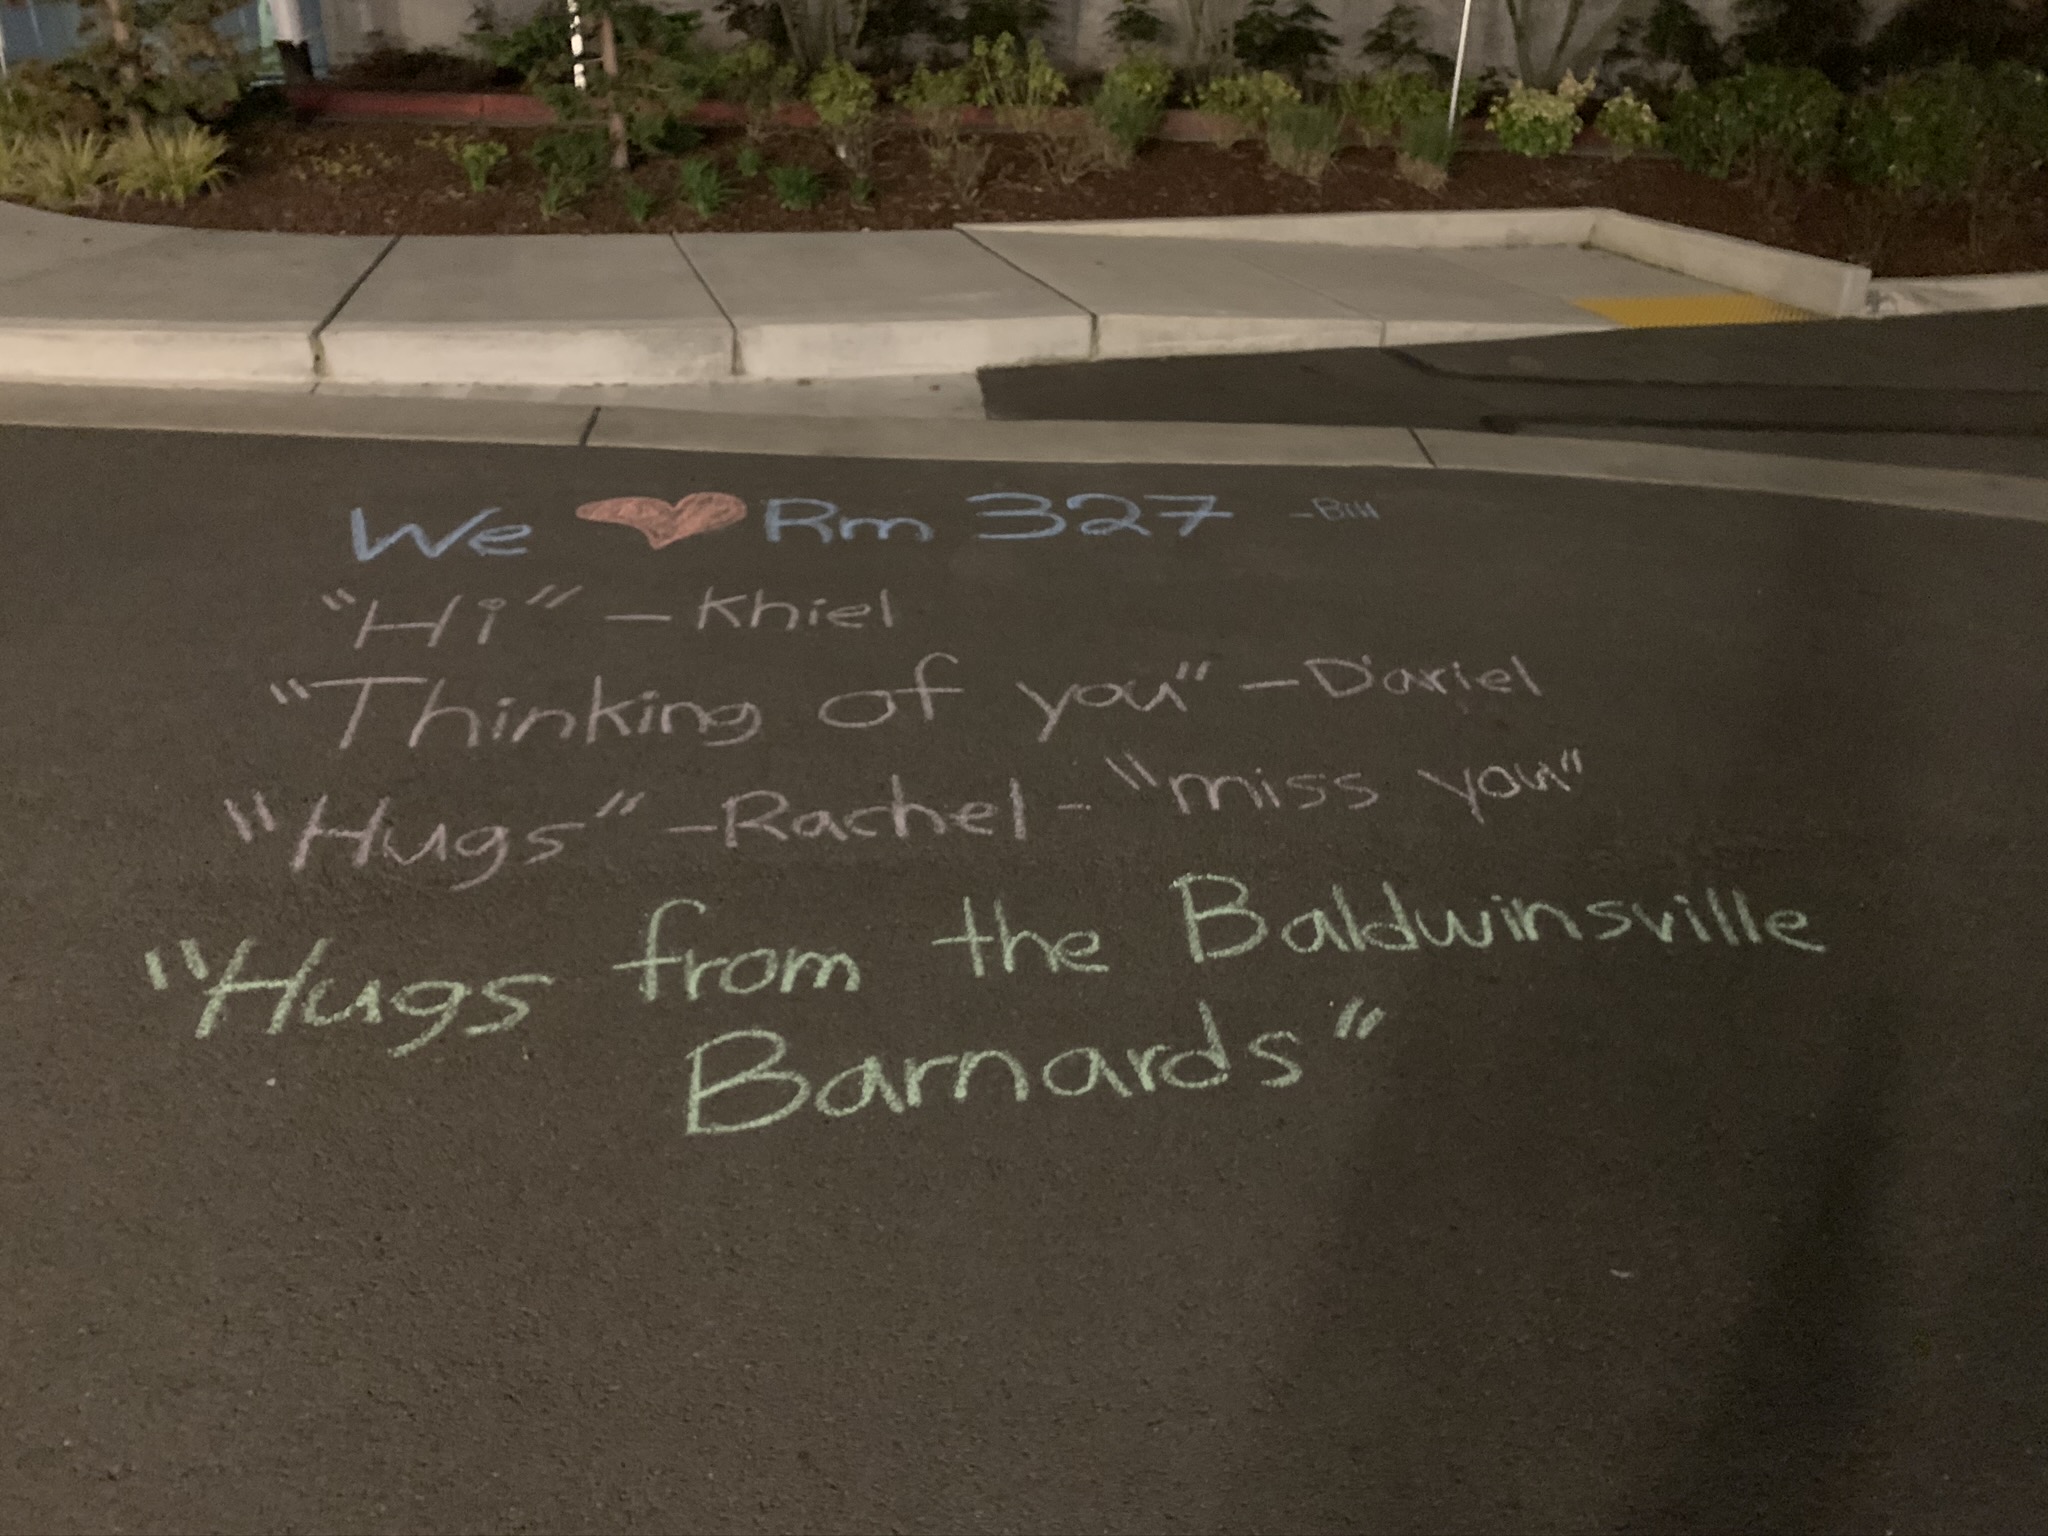 We ❤ Rm 327 -Bill
"Hi" - Khiel
"Thinking of you" - Dariel
"Hugs" - Rachel - "miss you"
"Hugs from the Baldwinsville
Barnards"